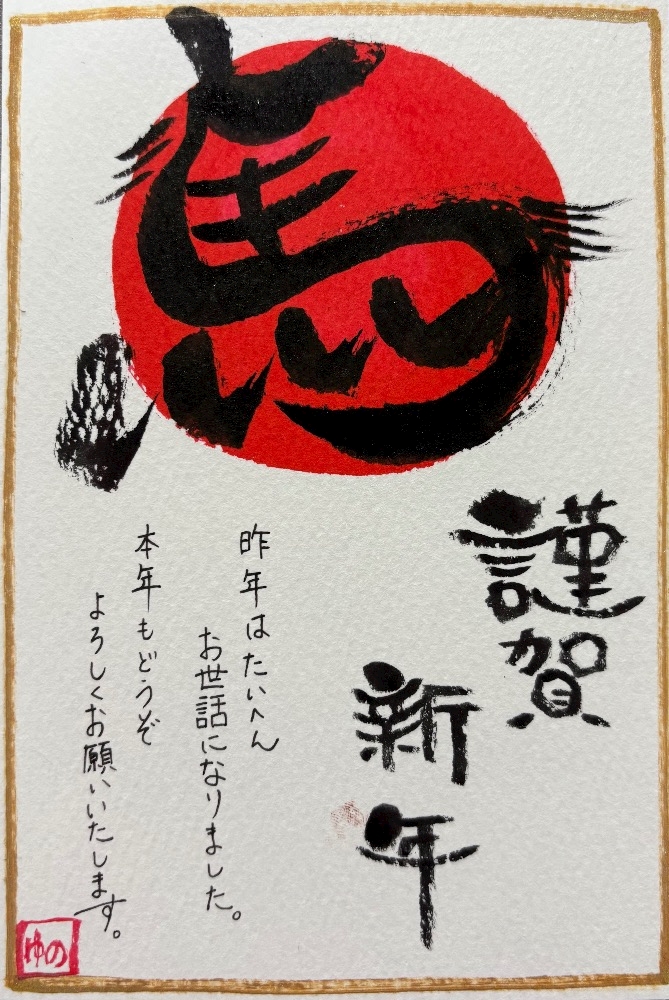 馬
謹賀
新年
昨年はたいへん
お世話になりました。
本年もどうぞ
よろしくお願いいたします。
ゆの